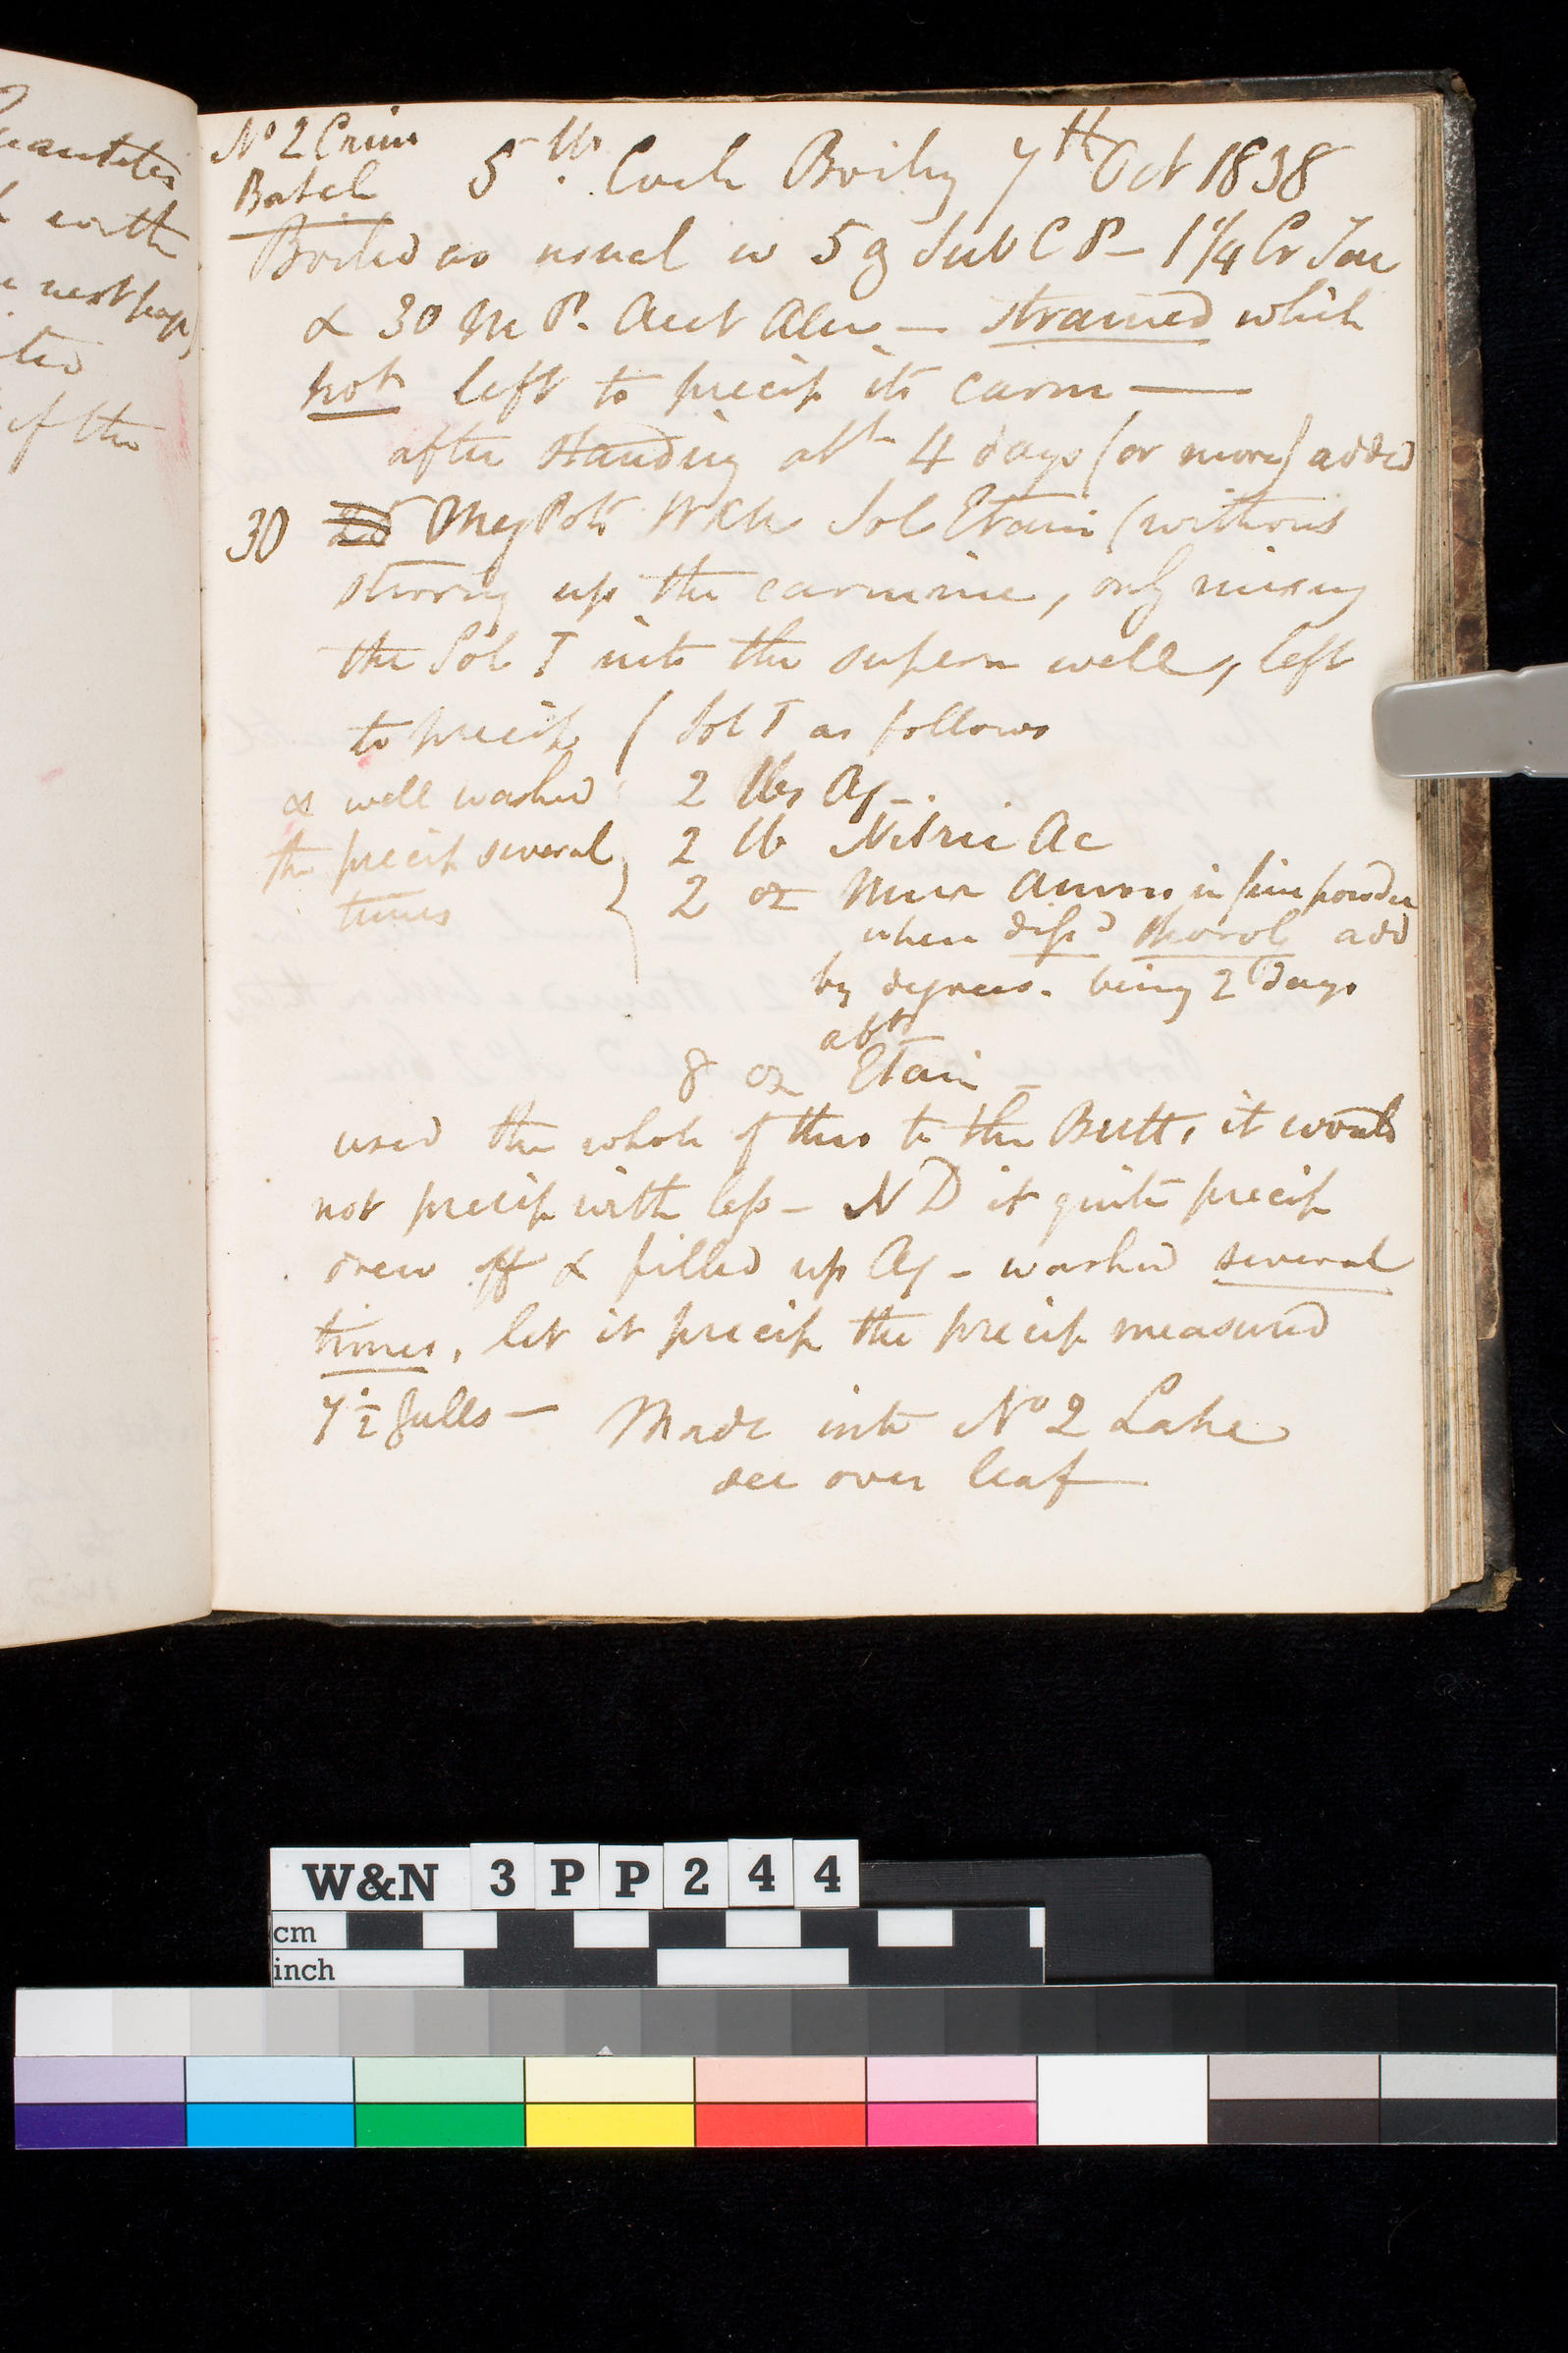 Quantities
with
next page)
ted
if the
No 2 Crims
Batch
5 lbs Coch Boiling 7th Oct 1838
Boiled as usual w 5 g Sub C P - 1 1/4 Cr Tar
& 30 M P. Acet Alum — strained which
hot left to precip its carm —
after standing abt 4 days (or more) added
30 25 Meg Pots Sol Etain (without
stirring up the carmine, only mixing
the Sol T into the supern well, left
to precip ( Sol T as follows
& well washed
the precip several
times
2 lbs Aq -.
2 lb Nitric Ac
2 oz Mur Ammo in fine powder
when disd thorol add
by degrees. being 2 days
abt
8 oz Etain -
used the whole of this to the Butt, it would
not precip with less - N D it quite precip
drew off & filled up Aq - washed several
times, let it precip the precip measured
7 1/2 galls - Made into No 2 Lake
see over leaf
W&N 3PP244
cm
inch